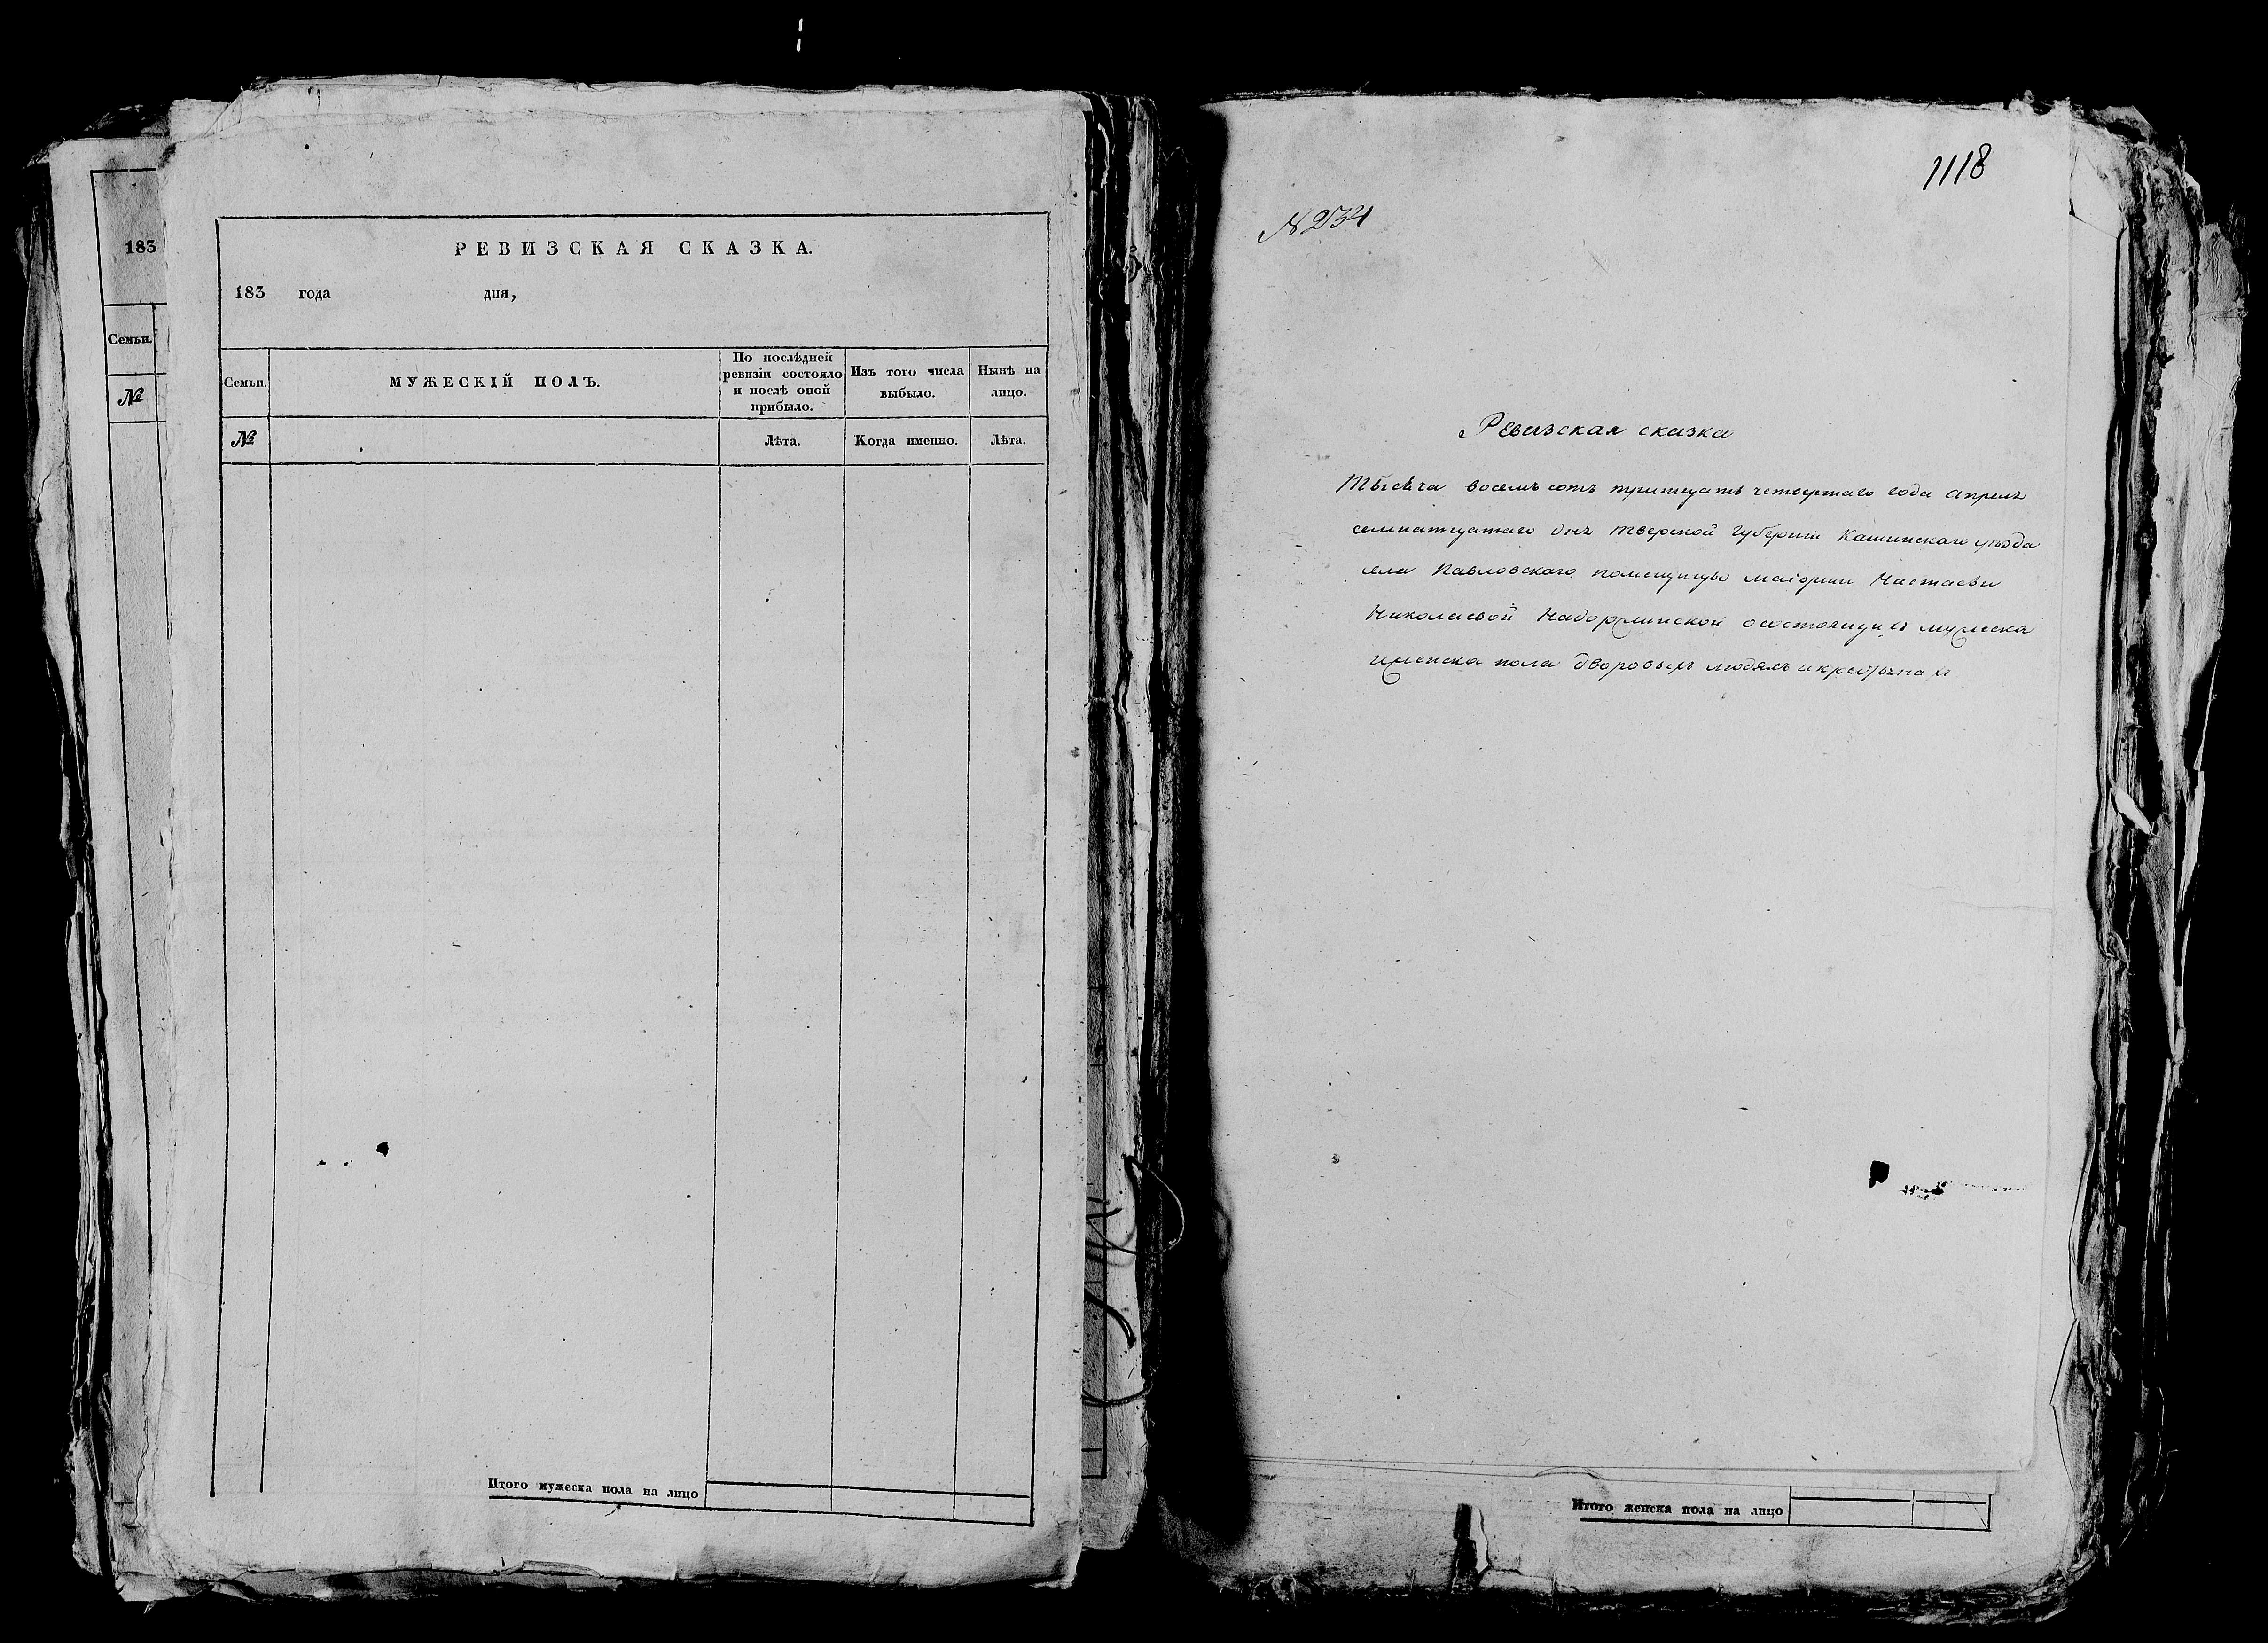 183
Семьи.
№
РЕВИЗСКАЯ СКАЗКА.
183 года дня,
Семьи.
МУЖЕСКІЙ ПОЛЪ.
По послѣдней ревизіи состояло и послѣ оной прибыло.
Изъ того числа выбыло.
Нынѣ на лицо.
№
Лѣта.
Когда именно.
Лѣта.
Итого мужеска пола на лицо
1118
№ 234
Ревизская сказка
Тысеча восемь сотъ тритцать четвертаго года апреля
семнатцатаго дня Тверской Губерніи Кашинскаго уѣзда
села Павловскаго помещицы маіорши Настасьи
Николаевой осостоящихъ мужеска
иженска пола дворовыхъ людяхъ икрестьянах
Итого женска пола на лицо